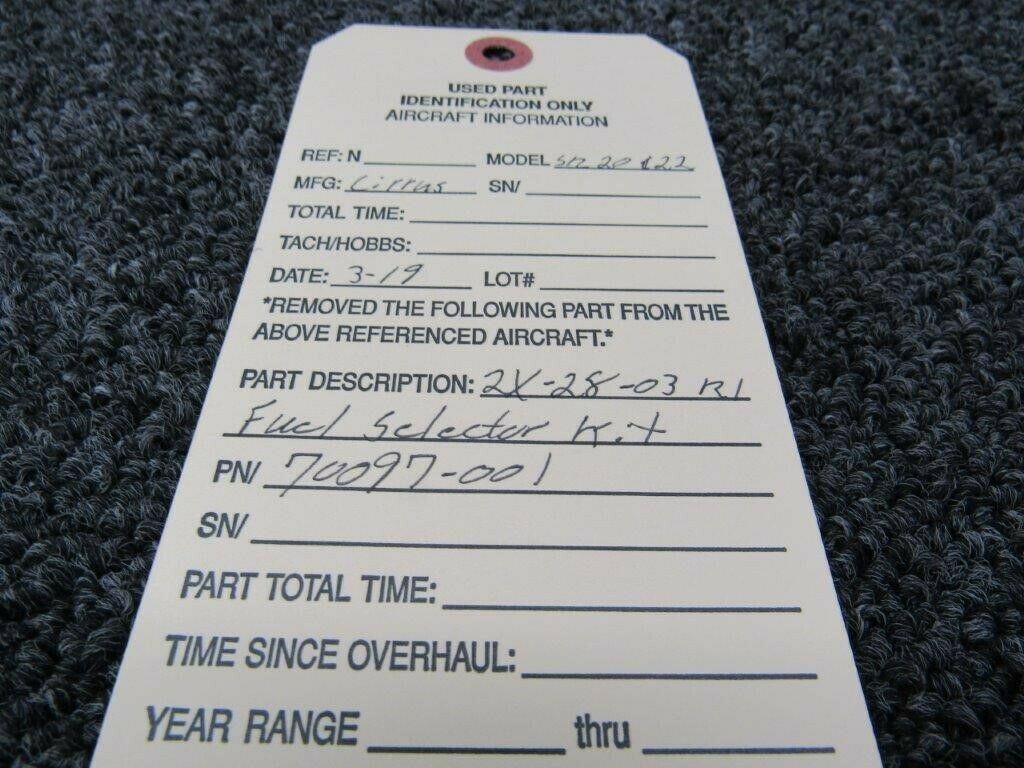 USED PART
IDENTIFICATION ONLY
AIRCRAFT INFORMATION
REF: N MODEL SR 20 & 22
MFG: Cirrus SN/
TOTAL TIME:
TACH/HOBBS:
DATE: 3-19 LOT#
*REMOVED THE FOLLOWING PART FROM THE
ABOVE REFERENCED AIRCRAFT.*
PART DESCRIPTION: 2X-28-03 R1
Fuel Selector Kit
PN/ 70097-001
SN/
PART TOTAL TIME:
TIME SINCE OVERHAUL:
YEAR RANGE thru